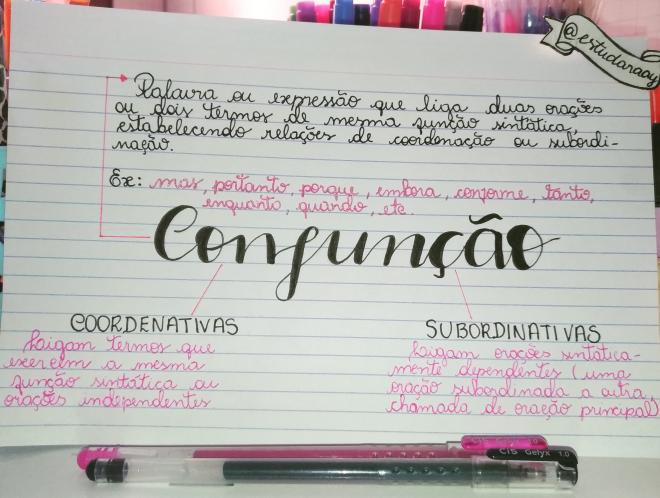 @estudaraay
Palavra ou expressão que liga duas orações
ou dois termos de mesma função sintática,
estabelecendo relações de coordenação ou subordi-
nação.
Ex: mas, portanto, porque, embora, conforme, tanto,
enquanto, quando, etc.
Conjunção
COORDENATIVAS
Ligam termos que
exercem a mesma
função sintática ou
orações independentes
SUBORDINATIVAS
Ligam orações sintatica-
mente dependentes (uma
oração subordinada a outra,
chamada de oração principal)
CIS Gelyx 1.0